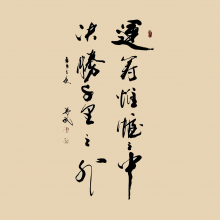 運筹帷幄之中
决勝千里之外